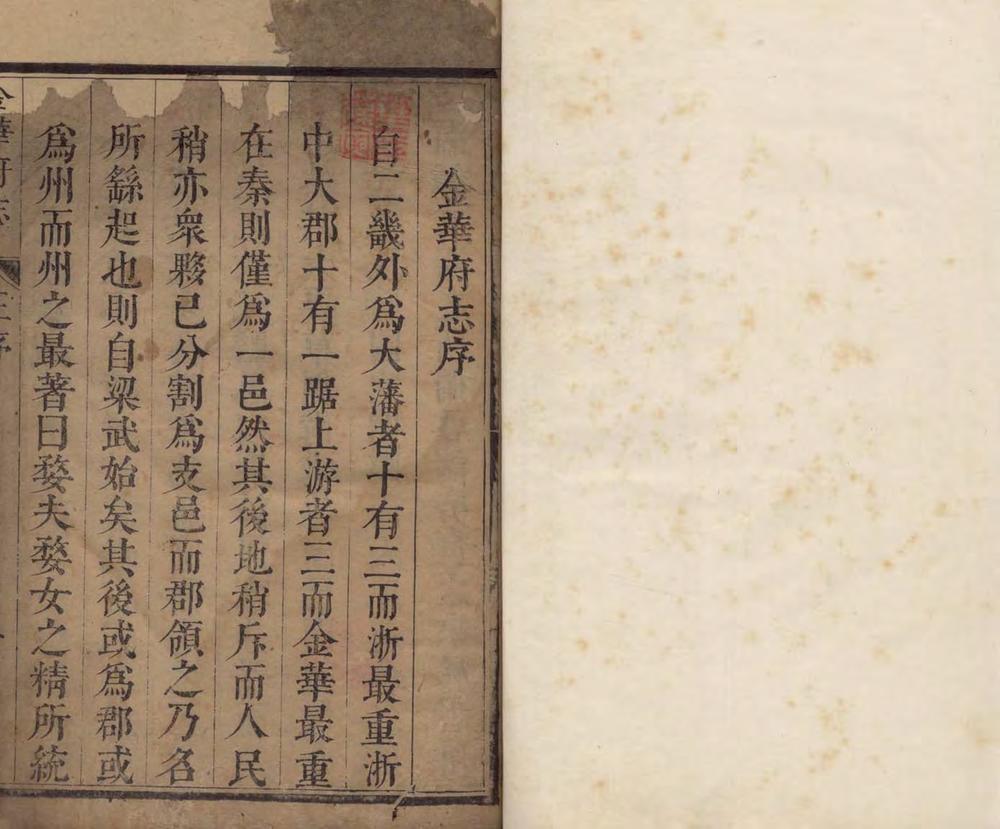 金華府志序
自二畿外爲大藩者十有三而浙最重浙
中大郡十有一踞上游者三而金華最重
在秦則僅爲一邑然其後地稍斥而人民
稍亦衆夥已分割爲支邑而郡領之乃名
所繇起也則自梁武始矣其後或爲郡或
爲州而州之最著曰婺夫婺女之精所統
金華府志
王序